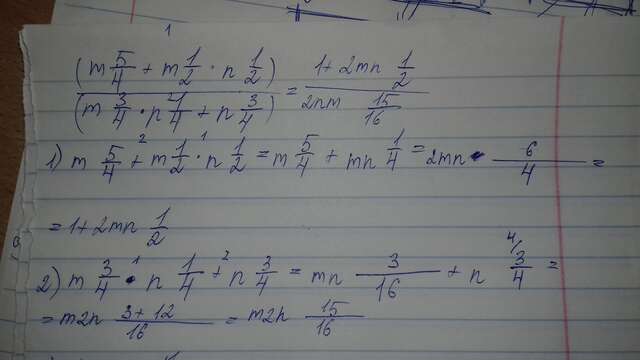 1
(m 5/4 + m 1/2 · n 1/2) / (m 3/4 · n 1/4 + n 3/4) = 1+2mn 1/2 / 2nm 15/16
2 1
1) m 5/4 + m 1/2 · n 1/2 = m 5/4 + mn 1/4 = 2mn · 6/4 =
= 1+2mn 1/2
1 2 4/
2) m 3/4 · n 1/4 + n 3/4 = mn 3/16 + n 3/4 =
= m2n 3+12/16 = m2n 15/16